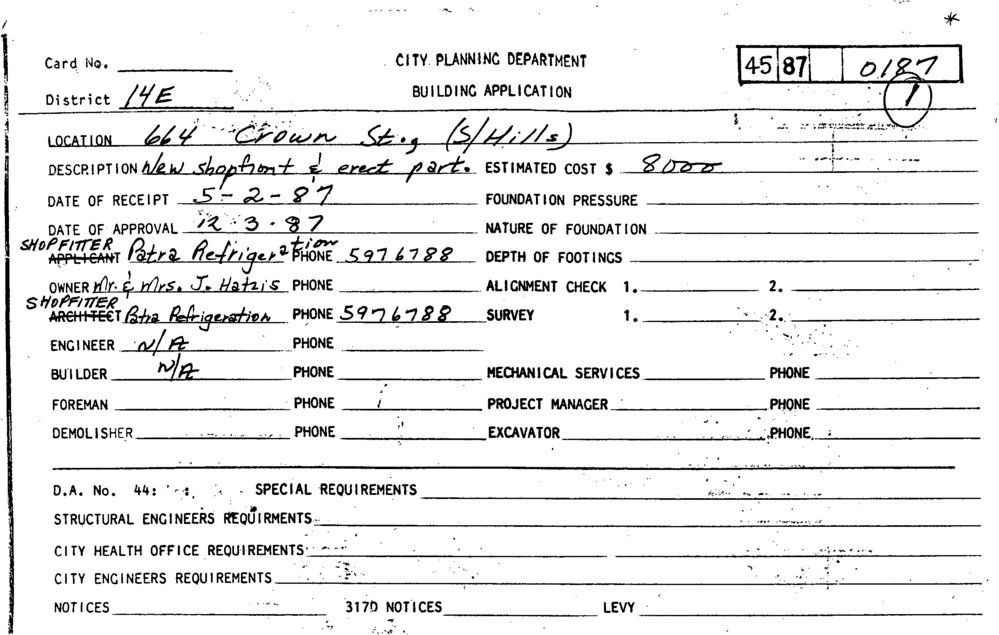 *
Card No. CITY PLANNING DEPARTMENT 45 87 0187
District 14E BUILDING APPLICATION 1
LOCATION 664 Crown St., (S/Hills)
DESCRIPTION New shopfront & erect part. ESTIMATED COST $ 8000
DATE OF RECEIPT 5-2-87 FOUNDATION PRESSURE
DATE OF APPROVAL 12-3-87 NATURE OF FOUNDATION
SHOPFITTER
APPLICANT Patra Refrigeration PHONE 5976788 DEPTH OF FOOTINGS
OWNER Mr. & Mrs. J. Hatzis PHONE ALIGNMENT CHECK 1. 2.
SHOPFITTER
ARCHITECT Patra Refrigeration PHONE 5976788 SURVEY 1. 2.
ENGINEER N/A PHONE
BUILDER N/A PHONE MECHANICAL SERVICES PHONE
FOREMAN PHONE PROJECT MANAGER PHONE
DEMOLISHER PHONE EXCAVATOR PHONE
D.A. No. 44: SPECIAL REQUIREMENTS
STRUCTURAL ENGINEERS REQUIRMENTS
CITY HEALTH OFFICE REQUIREMENTS
CITY ENGINEERS REQUIREMENTS
NOTICES 317D NOTICES LEVY